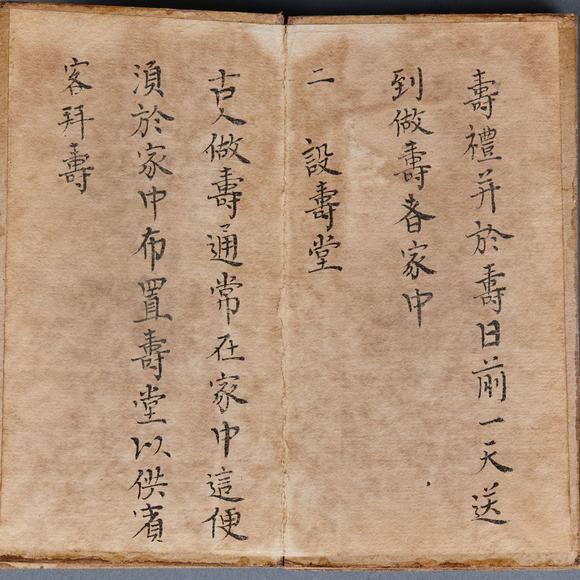 壽禮并於壽日前一天送
到做壽者家中
二 設壽堂
古人做壽通常在家中這便
須於家中布置壽堂以供賓
客拜壽